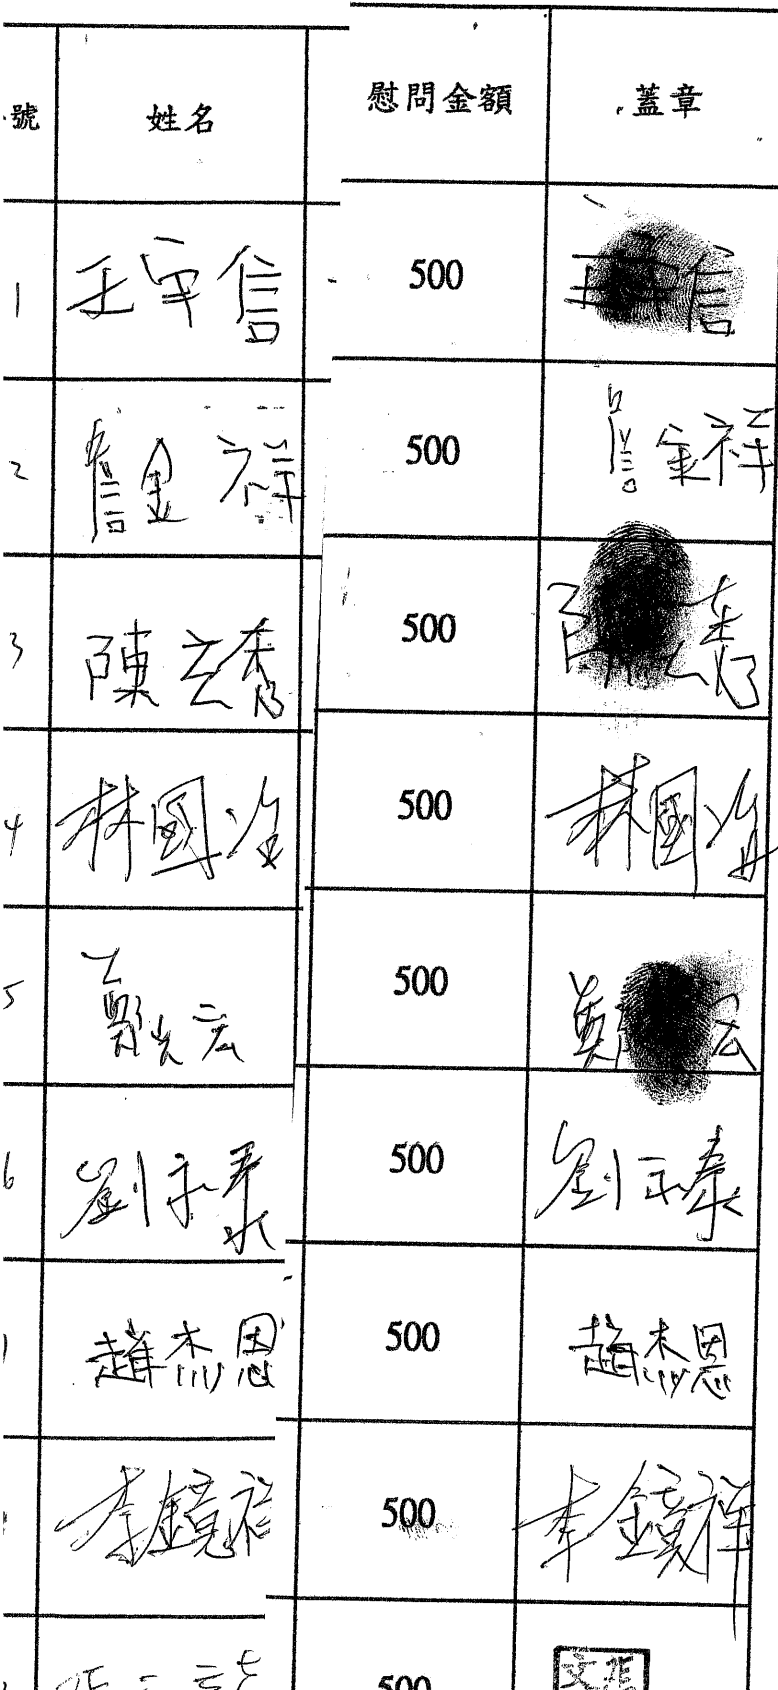 號 姓名 慰問金額 蓋章
1 王宇信 500 王宇信
2 詹金祥 500 詹金祥
3 陳玄秀 500
4 林國治 500 林國治
5 鄭光宏 500
劉永泰 500 劉永泰
趙杰恩 500 趙杰恩
李鏡祥 500 李鏡祥
500